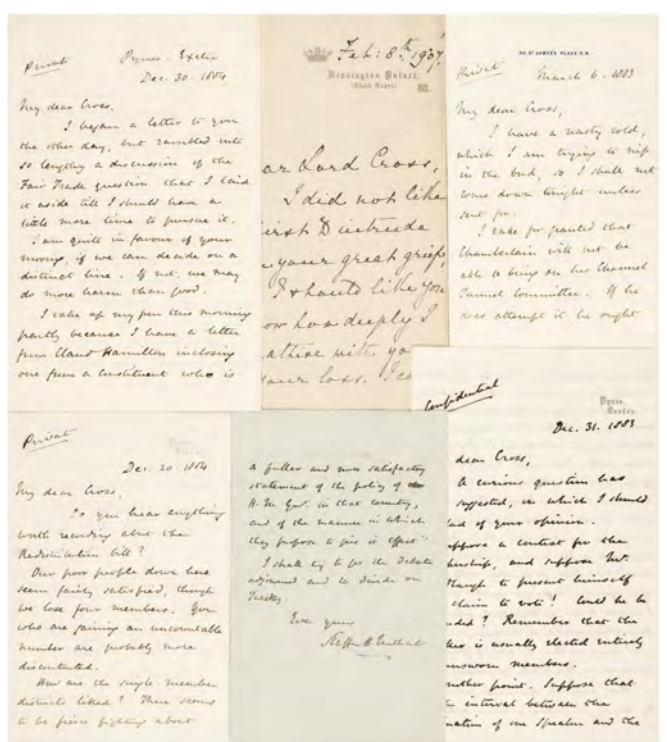 Private
Pynes. Exeter
Dec. 30. 1884
My dear Cross,
I began a letter to you
the other day, but rambled into
so lengthy a discussion of the
Fair Trade question that I laid
it aside till I should have a
little more time to pursue it.
I am quite in favour of your
moving, if we can decide on a
distinct line. If not, we may
do more harm than good.
I take up my pen this morning
partly because I have a letter
from Claud Hamilton inclosing
one from a constituent who is
Feb: 8th 1907.
Kensington Palace,
ar Lord Cross,
I did not like
irst to intrude
your great grief,
I should like you
ow how deeply I
athise with yo
your loss. I
30, ST JAMES'S PLACE. S.W.
Private
March 6. 1883
My dear Cross,
I have a nasty cold,
which I am trying to nip
in the bud, so I shall not
come down tonight unless
sent for.
I take for granted that
Chamberlain will not be
able to bring on his Channel
Tunnel Committee. If he
does attempt it he ought
Private
Dec. 20. 1884
My dear Cross,
Do you hear anything
worth recording about the
Redistribution bill?
Our poor people down here
seem fairly satisfied, though
we lose four members. You
who are gaining an uncountable
number are probably more
discontented.
How are the single-member
districts liked? There seems
to be fierce fighting about
a fuller and more satisfactory
statement of the policy of
H. M. Govt in that country,
and of the manner in which
they propose to give it effect"
I shall try to get the Debate
adjourned and to divide on
Tuesday.
Ever yours
Confidential
Pynes,
Exeter.
Dec. 31. 1883
dear Cross,
A curious question has
suggested, on which I should
lad of your opinion.
uppose a contest for the
kership, and suppose Mr.
laugh to present himself
claim to vote! Could he be
nded? Remember that the
ker is usually elected entirely
unsworn members.
nother point. Suppose that
interval between the
nation of one Speaker and the